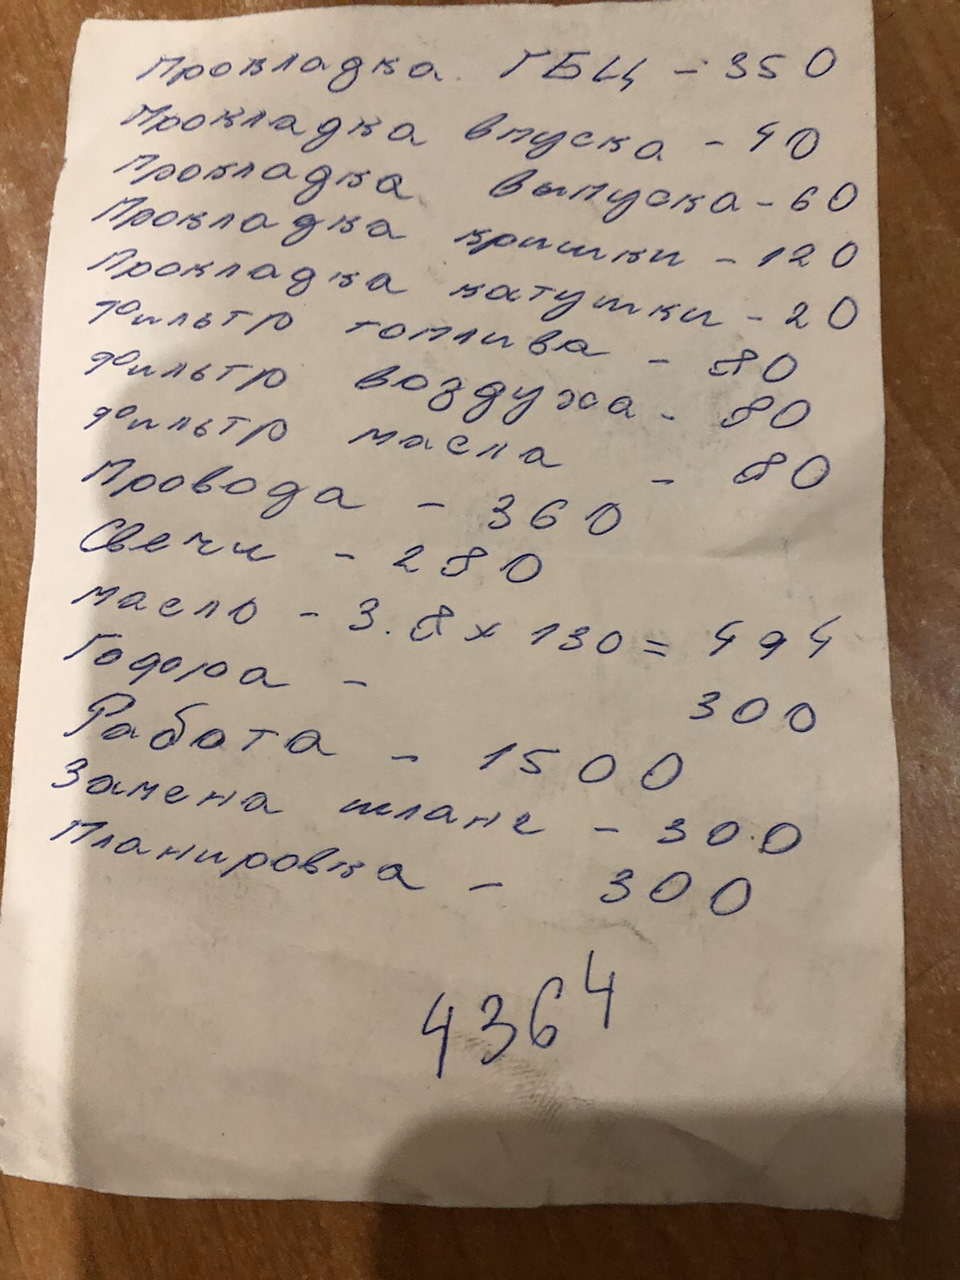 Прокладка ГБЦ - 350
Прокладка впуска - 40
Прокладка выпуска - 60
Прокладка кришки - 120
Прокладка катушки - 20
Фильтр топлива - 80
Фильтр воздуха - 80
Фильтр масла - 80
Провода - 360
Свечи - 280
масло - 3.8 x 130 = 494
- 300
Работа - 1500
Замена шланг - 300
Планировка - 300
4364